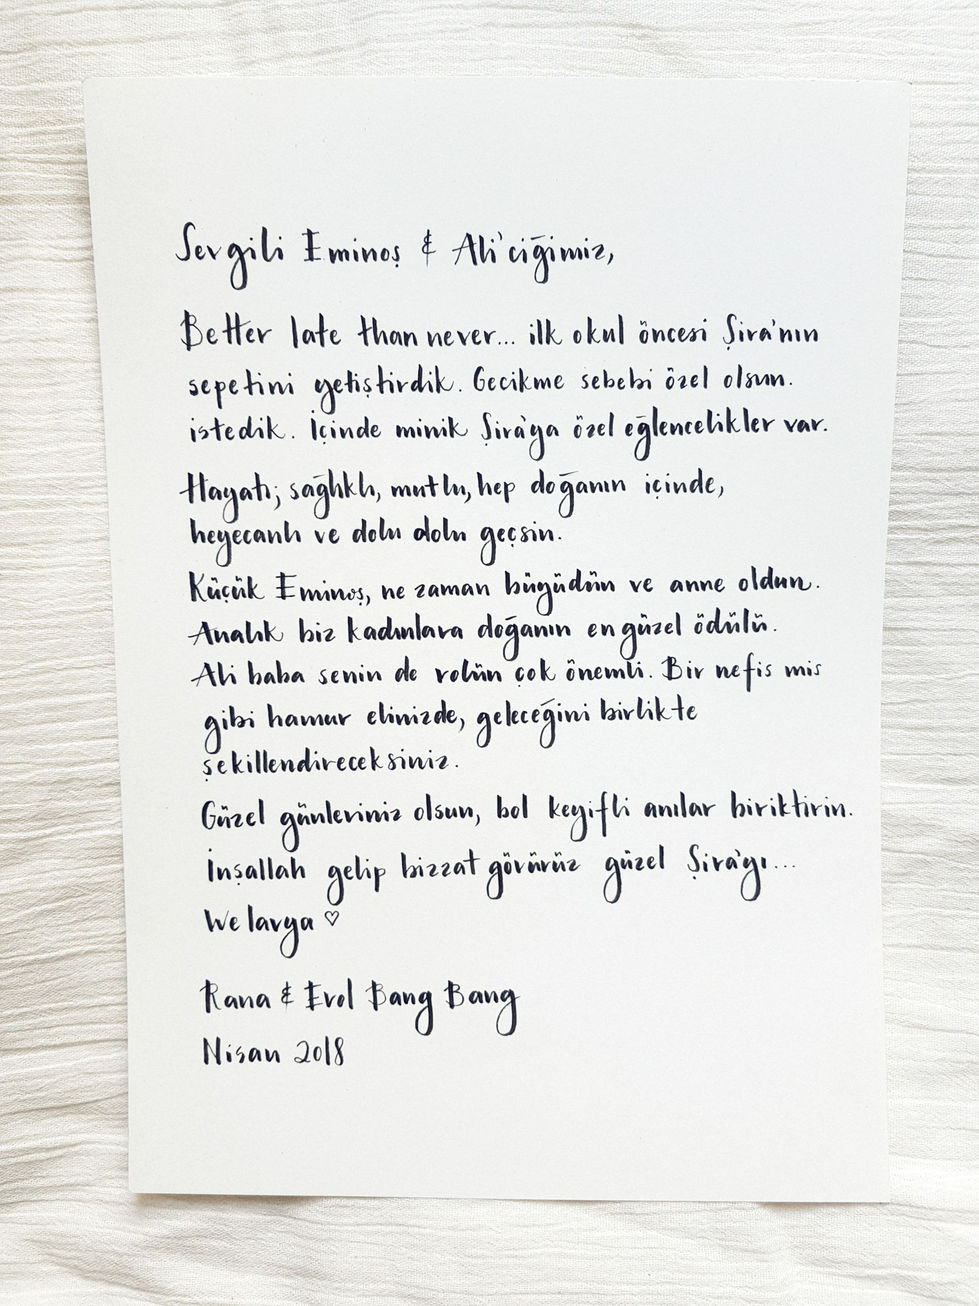 Sevgili Eminoş & Ali'ciğimiz,
Better late than never... ilk okul öncesi Şira'nın
sepetini yetiştirdik. Gecikme sebebi özel olsun.
istedik. İçinde minik Şira'ya özel eğlencelikler var.
Hayatı; sağlıklı, mutlu, hep doğanın içinde,
heyecanlı ve dolu dolu geçsin.
Küçük Eminoş, ne zaman büyüdün ve anne oldun.
Analık biz kadınlara doğanın en güzel ödülü.
Ali baba senin de rolün çok önemli. Bir nefis mis
gibi hamur elinizde, geleceğini birlikte
şekillendireceksiniz.
Güzel günleriniz olsun, bol keyifli anılar biriktirin.
İnşallah gelip bizzat görürüz güzel Şira'yı...
We lavya ♡
Rana & Erol Bang Bang
Nisan 2018